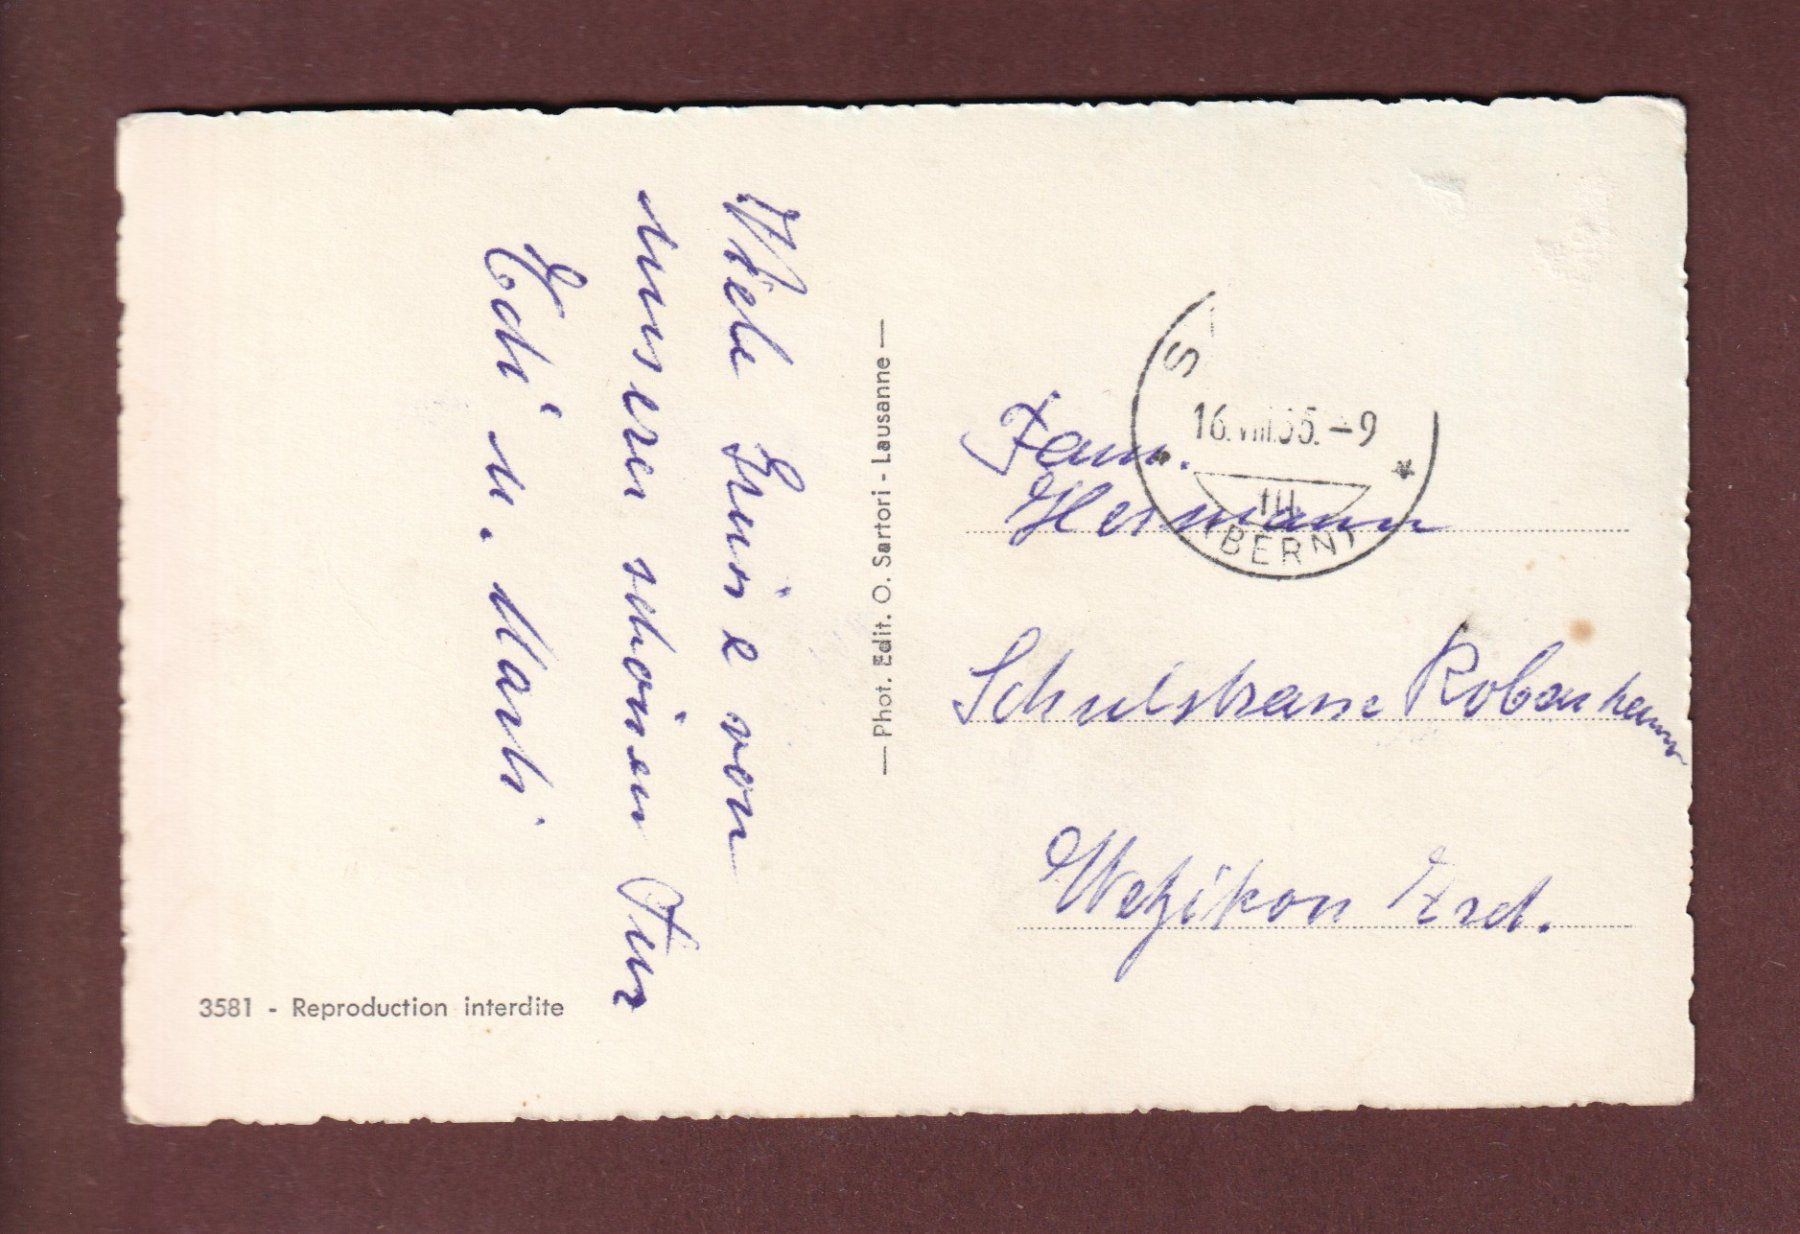 Viele Grüsse von
unserer schönen Tur
Edi u. Marti
— Phot. Edit. O. Sartori - Lausanne —
3581 - Reproduction interdite
S
16.VIII.55.-9
(BERN)
Fam.
Hermann
Schulstrasse Robenhausen
Wetzikon